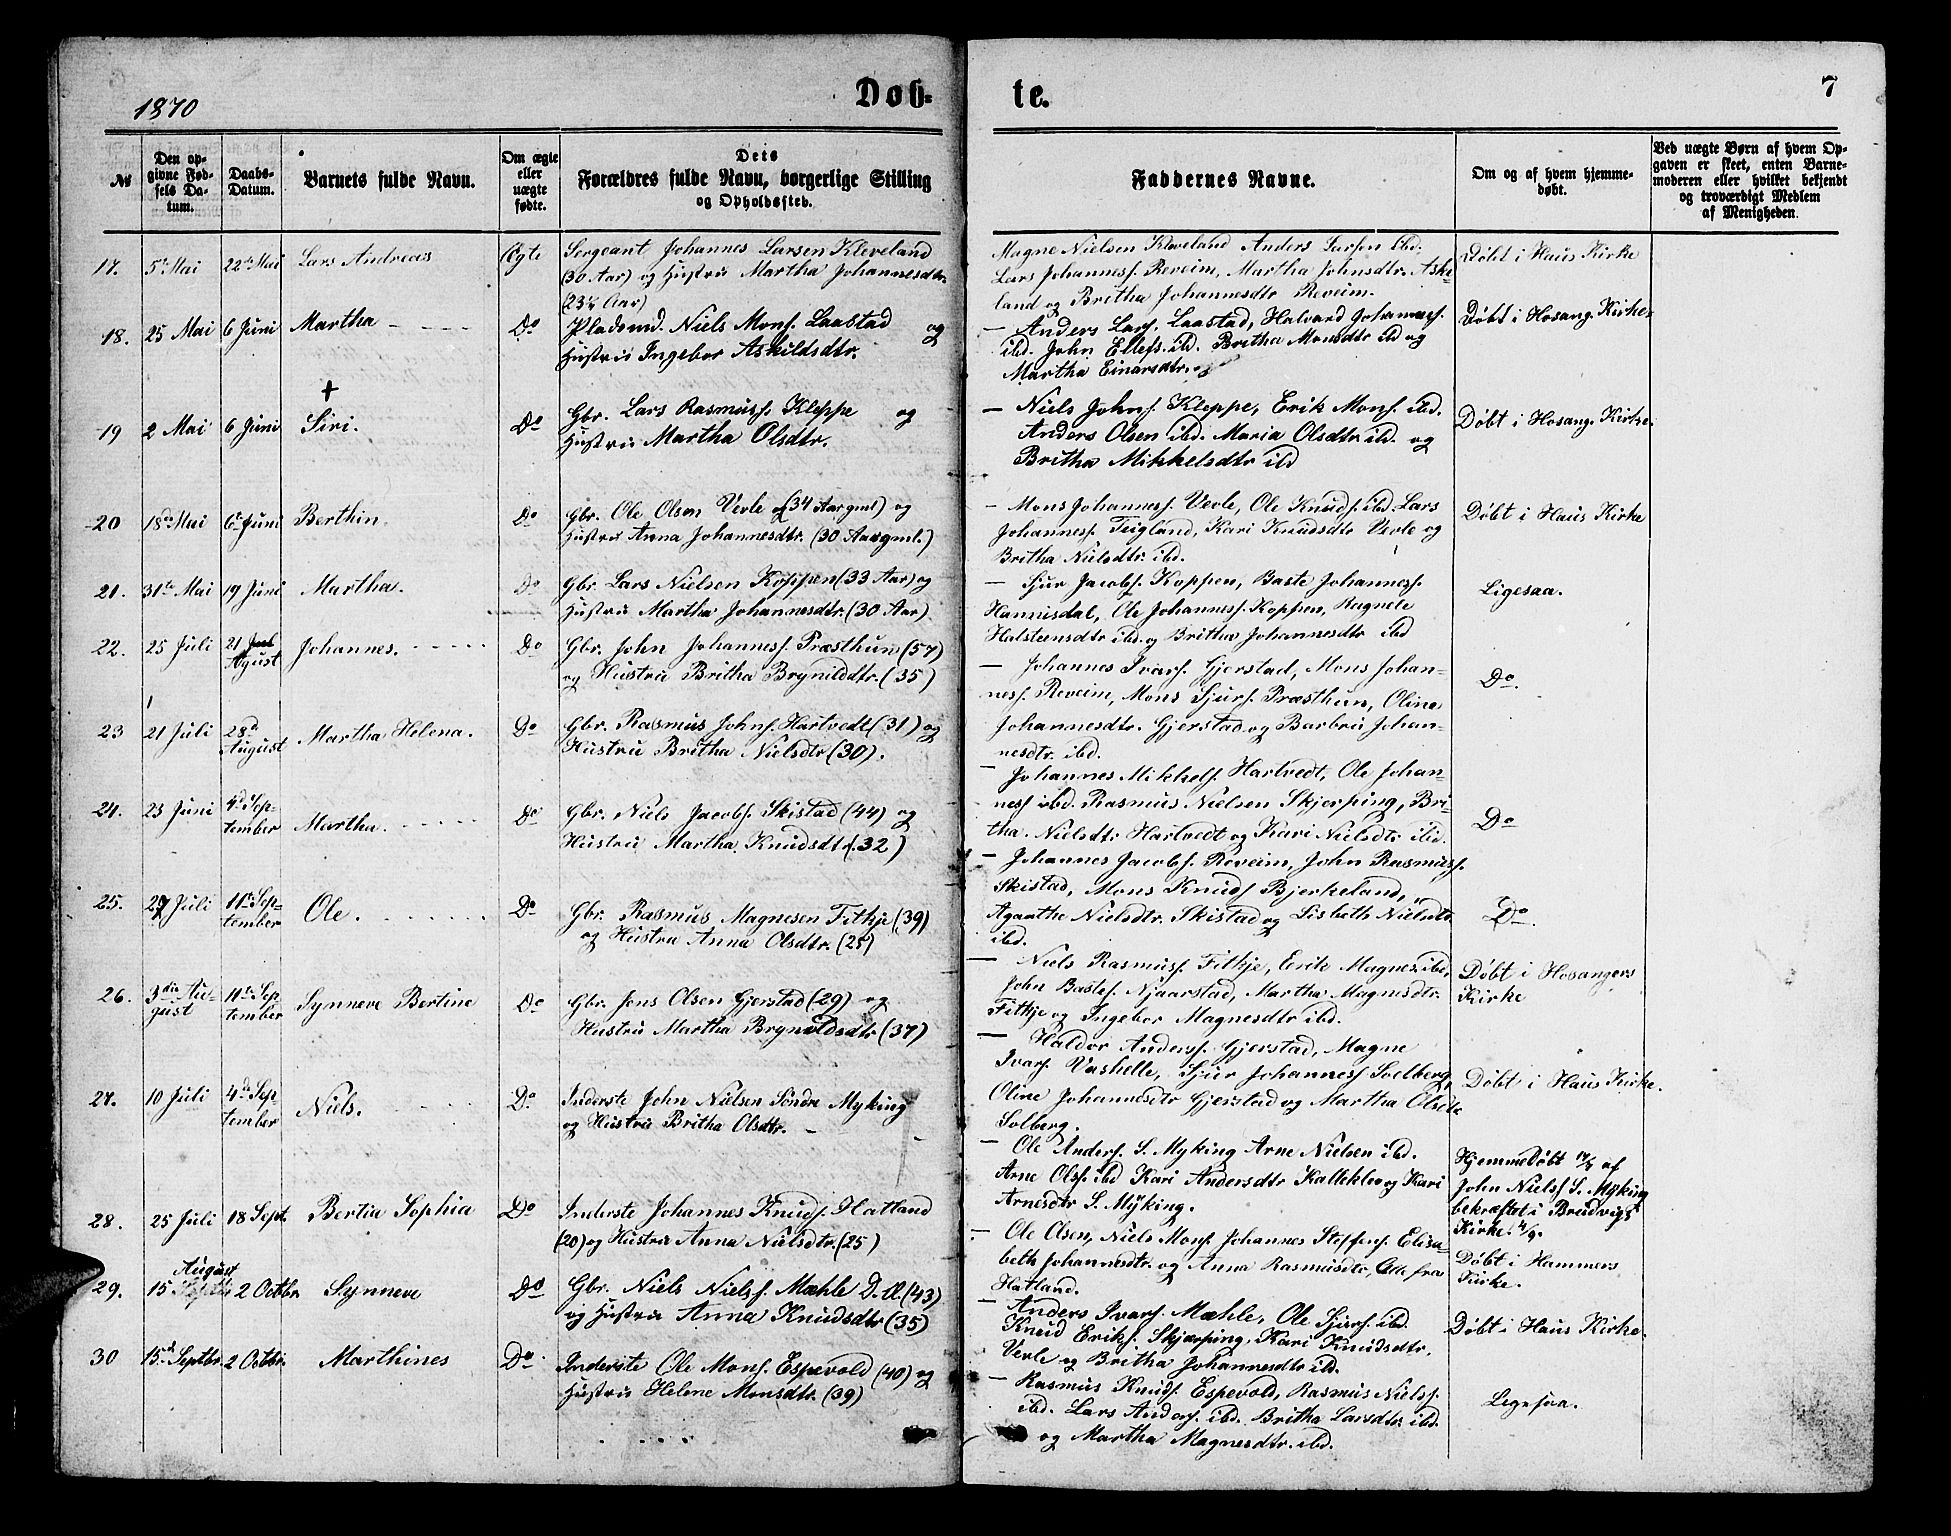 1870
Døb-
te.
7
№
Den op-
givne Fød-
sels Da-
tum.
Daabs-
Datum.
Barnets fulde Navn.
Om ægte
eller
uægte
fødte.
Dets
Forældres fulde Navn, borgerlige Stilling
og Opholdssted.
Faddernes Navne.
Om og af hvem hjemme-
døbt.
Ved uægte Børn af hvem Op-
gaven er skeet, enten Barne-
moderen eller hvilket bekjendt
og troværdigt Medlem
af Menigheden.
17. 5te Mai 22de Mai Lars Andreas Ægte
Sergeant Johannes Larsen Kleveland
(30 Aar) og Hustru Martha Johannesdtr.
(23½ Aar)
Magne Nielsen Kleveland Anders Larsen ibd.
Lars Johannesf. Reveim, Martha Johnsdtr. Aske-
land og Britha Johannesdtr Reveim.
Døbt i Haus Kirke
18. 25 Mai 6 Juni Martha Do
Pladsmd. Niels Monsf. Laastad og
Hustru Ingebor Askildsdtr.
— Anders Larsf. Laastad, Halvard Johannesf.
ibd. John Ellefs. ibd. Britha Monsdtr ibd og
Martha Einarsdtr.
Døbt i Hosang. Kirke.
+
19 2 Mai 6 Juni Siri. Do
Gbr. Lars Rasmusf. Kleppe og
Hustru Martha Olsdtr.
— Niels Johnf. Kleppe, Erik Monsf. ibd.
Anders Olsen ibd. Maria Olsdtr ibd. og
Britha Mikkelsdtr ibd
Døbt i Hosang. Kirke.
20 18de Mai 6te Juni Berthin. Do
Gbr. Ole Olsen Verle (34 Aar gml) og
Hustru Anna Johannesdtr. (30 Aar gml.)
— Mons Johannesf. Verle, Ole Knudf. ibd. Lars
Johannesf. Teigland, Kari Knudsdtr Verle og
Britha Nielsdtr. ibd.
Døbt i Haus Kirke
21. 31te Mai 19 Juni Martha. Do
Gbr. Lars Nielsen Koppen (33 Aar) og
Hustru Martha Johannesdtr. (30 Aar)
— Sjur Jacobf. Koppen, Baste Johannesf.
Hannisdal, Ole Johannesf. Koppen, Ragnele
Halsteensdtr ibd. og Britha Johannesdtr ibd
Ligesaa.
22. 25 Juli 21 Agust Johannes. Do
Gbr. John Johannesf. Præsthun (57)
og Hustru Britha Brynilddtr. (35)
— Johannes Ivarf. Gjerstad, Mons Johan-
nesf. Reveim, Mons Sjurf. Præsthun, Oline
Johannesdtr. Gjerstad og Barbru Johan-
nesdtr. ibd.
Do.
23 21 Juli 28de August Martha Helena. Do
Gbr. Rasmus Johnf. Hartvedt (31) og
Hustru Britha Nielsdtr (30).
— Johannes Mikkelf. Hartvedt, Ole Johan-
nesf ibd. Rasmus Nielsen Skjerping, Bri-
tha. Nielsdtr Hartvedt og Kari Nielsdtr ibd.
Do
24. 23 Juni 4de Sep-
tember Martha. Do
Gbr. Niels Jacobf. Skistad (44) og
Hustru Martha Knudsdtr (32)
— Johannes Jacobf. Reveim, John Rasmusf.
Skistad, Mons Knudf Bjerkeland,
Agaathe Nielsdtr. Skistad og Lisbeth Nielsdtr.
ibd.
Do.
25. 27 Juli 11te Sep-
tember Ole. Do
Gbr. Rasmus Magnesen Fitkje (39)
og Hustru Anna Olsdtr. (25)
— Niels Rasmusf. Fitkje, Erik Magnes. ibd,
John Bastef. Njaarstad, Martha Magnesdtr.
Fitkje og Ingebor Magnesdtr ibd.
Døbt i Hosangers
Kirke
26. 3die Au-
gust 11te Sep-
tember Synneve Bertine Do
Gbr. Jons Olsen Gjerstad (29) og
Hustru Martha Brynildsdtr (37)
— Haldor Andersf. Gjerstad, Magne
Ivarf. Vashelle, Sjur Johannesf Soelberg,
Oline Johannesdtr Gjerstad og Martha Olsdtr
Solberg.
Døbt i Haus Kirke.
27. 10 Juli 4de Sep-
tember Niels. Do
Inderste John Nielsen Søndre Myking
og Hustru Britha Olsdtr.
— Ole Andersf. S. Myking Arne Nielsen ibd.
Arne Olsf. ibd Kari Andersdtr Kallekleo og Kari
Arnesdtr S. Myking.
Hjemmedøbt af
John Nielsf S. Myking
bekræftet i Brudvigs
Kirke. 4/9.
28. 25 Juli 18 Sept. Bertia Sophia Do
Inderste Johannes Knudf. Hatland
(20) og Hustru Anna Nielsdtr. (25)
— Ole Olsen, Niels Monsf. Johannes Steffenf. Elisa-
beth Johannesdtr. og Anna Rasmusdtr, Alle fra
Hatland.
Døbt i Hammers
Kirke.
29. 15 August 2 Octbr. Synneve Do
Gbr. Niels Nielsf. Mæhle D. Æ. (43)
og Hustru Anna Knudsdtr (35)
— Anders Ivarf. Mæhle, Ole Sjurf. ibd.
Knud Erikf. Skjærping, Kari Knudsdtr.
Verle og Britha Johannesdtr ibd.
Døbt i Haus Kirke.
30 15de Septbr. 2 Octbr. Marthines Do.
Inderste Ole Monsf. Espevold (40) og
Hustru Helene Monsdtr. (39)
— Rasmus Knudf. Espevold, Rasmus Nielsf.
ibd. Lars Andersf. ibd. Britha Larsdtr. ibd.
og Martha Magnesdtr. ibd.
Ligesaa.